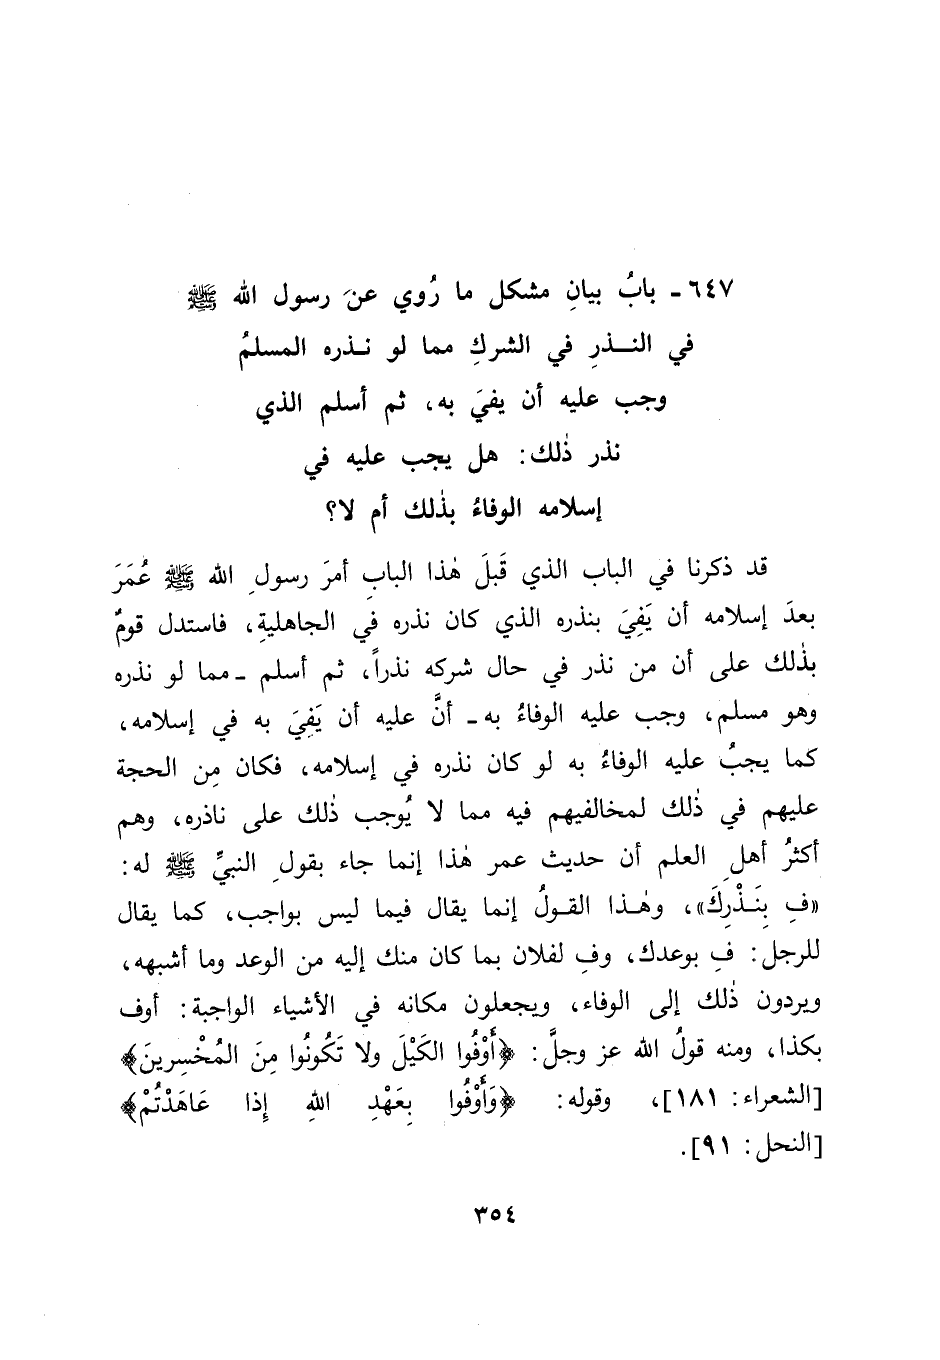 ٦٤٧ ـ بابُ بيانِ مشكل ما رُوي عنَ رسول الله ﷺ
في النــذرِ في الشركِ مما لو نــذره المسلمُ
وجب عليه أن يفيَ به، ثم أسلم الذي
نذر ذٰلك: هل يجب عليه في
إسلامه الوفاءُ بذٰلك أم لا؟
قد ذكرنا في الباب الذي قَبلَ هٰذا البابِ أمرَ رسولِ الله ﷺ عُمَرَ
بعدَ إسلامه أن يَفِيَ بنذره الذي كان نذره في الجاهليةِ، فاستدل قومٌ
بذٰلك على أن من نذر في حال شركه نذراً، ثم أسلم ـ مما لو نذره
وهو مسلم، وجب عليه الوفاءُ به ـ أنَّ عليه أن يَفِيَ به في إسلامه،
كما يجبُ عليه الوفاءُ به لو كان نذره في إسلامه، فكان مِن الحجة
عليهم في ذٰلك لمخالفيهم فيه مما لا يُوجب ذٰلك على ناذره، وهم
أكثرُ أهلِ العلم أن حديث عمر هٰذا إنما جاء بقولِ النبيِّ ﷺ له:
«فِ بِنَذْرِكَ»، وهٰـذا القـولُ إنما يقال فيما ليس بواجب، كما يقال
للرجل: فِ بوعدك، وفِ لفلان بما كان منك إليه من الوعد وما أشبهه،
ويردون ذٰلك إلى الوفاء، ويجعلون مكانه في الأشياء الواجبة: أوف
بكذا، ومنه قولُ الله عز وجلَّ: ﴿أَوْفُوا الكَيْلَ ولا تَكُونُوا مِنَ المُخْسِرينَ﴾
[الشعراء: ١٨١]، وقوله: ﴿وَأَوْفُوا بِعَهْدِ اللهِ إِذا عَاهَدْتُمْ﴾
[النحل: ٩١].
٣٥٤